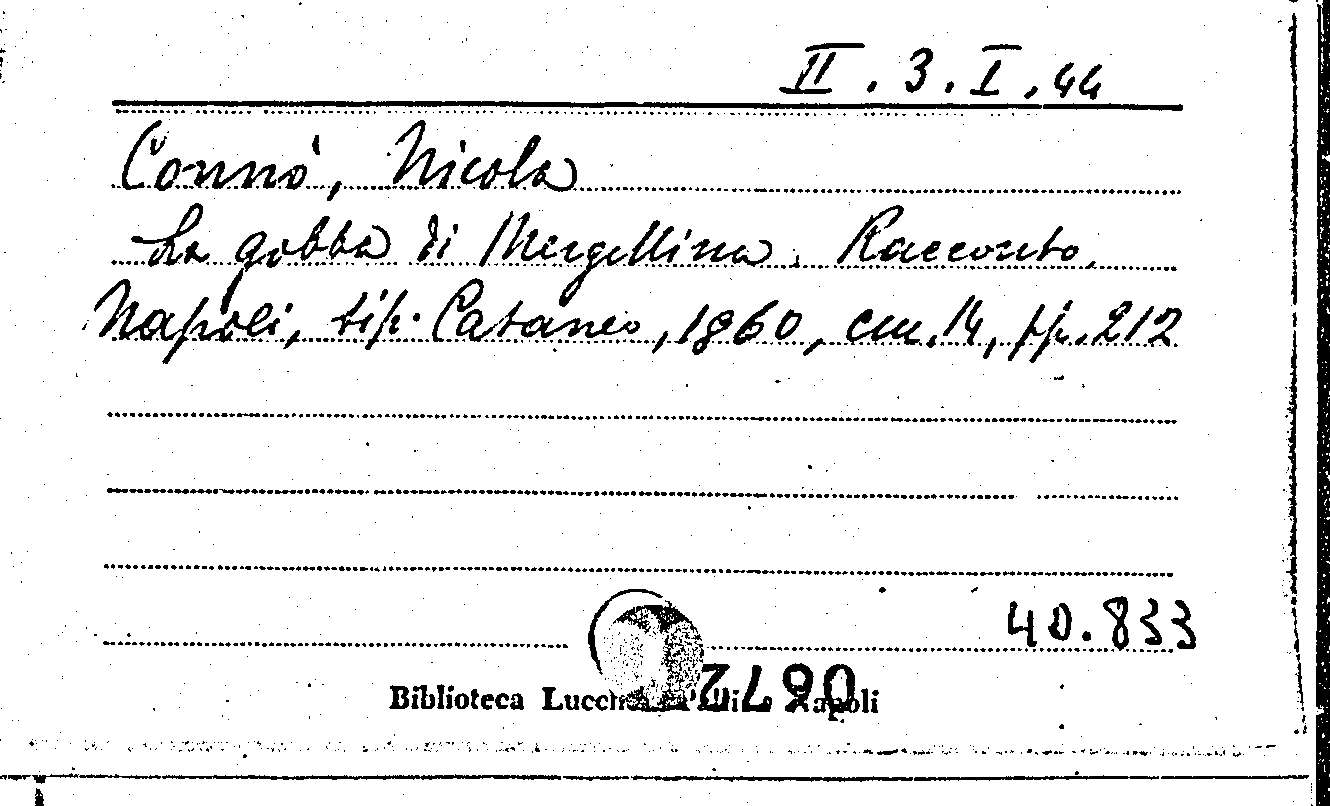 II.3.I.44
Connò, Nicola
La gobba di Mergellina. Racconto.
Napoli, tip. Cataneo, 1860, cm. 14, pp. 212
40.833
Biblioteca Napoli